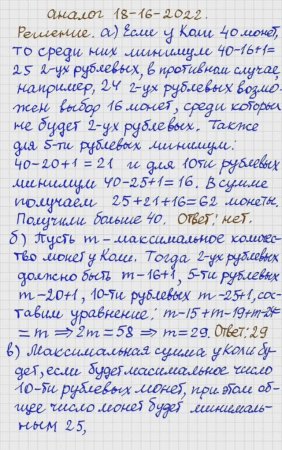 аналог 18-16-2022.
Решение. а) Если у Коли 40 монет,
то среди них минимум 40-16+1=
25 2-ух рублевых, в противном случае,
например, 24 2-ух рублевых возмо-
жен выбор 16 монет, среди которых
не будет 2-ух рублевых. Также
для 5-ти рублевых минимум:
40-20+1=21 и для 10ти рублевых
минимум 40-25+1=16. В сумме
получаем 25+21+16=62 монеты.
Получили больше 40. Ответ: нет.
б) Пусть m-максимальное количес-
тво монет у Коли. Тогда 2-ух рублевых
должно быть m-16+1, 5-ти рублевых
m-20+1, 10-ти рублевых m-25+1, сос-
тавим уравнение: m-15+m-19+m-24=
=m ⇒ 2m=58 ⇒ m=29. Ответ: 29
в) Максимальная сумма у Коли бу-
дет, если будет масимальное число
10-ти рублевых монет, при этом об-
щее число монет будет минималь-
ным 25,